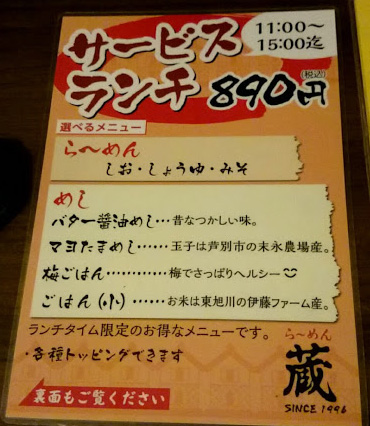 サービス
ランチ
11:00〜
15:00迄
(税込)
890円
選べるメニュー
ら〜めん
しお・しょうゆ・みそ
めし
バター醤油めし……昔なつかしい味。
マヨたまめし……玉子は芦別市の末永農場産。
梅ごはん…………梅でさっぱりヘルシー
ごはん(小)……お米は東旭川の伊藤ファーム産。
ランチタイム限定のお得なメニューです。
・各種トッピングできます
ら〜めん
蔵
SINCE 1996
裏面もご覧ください